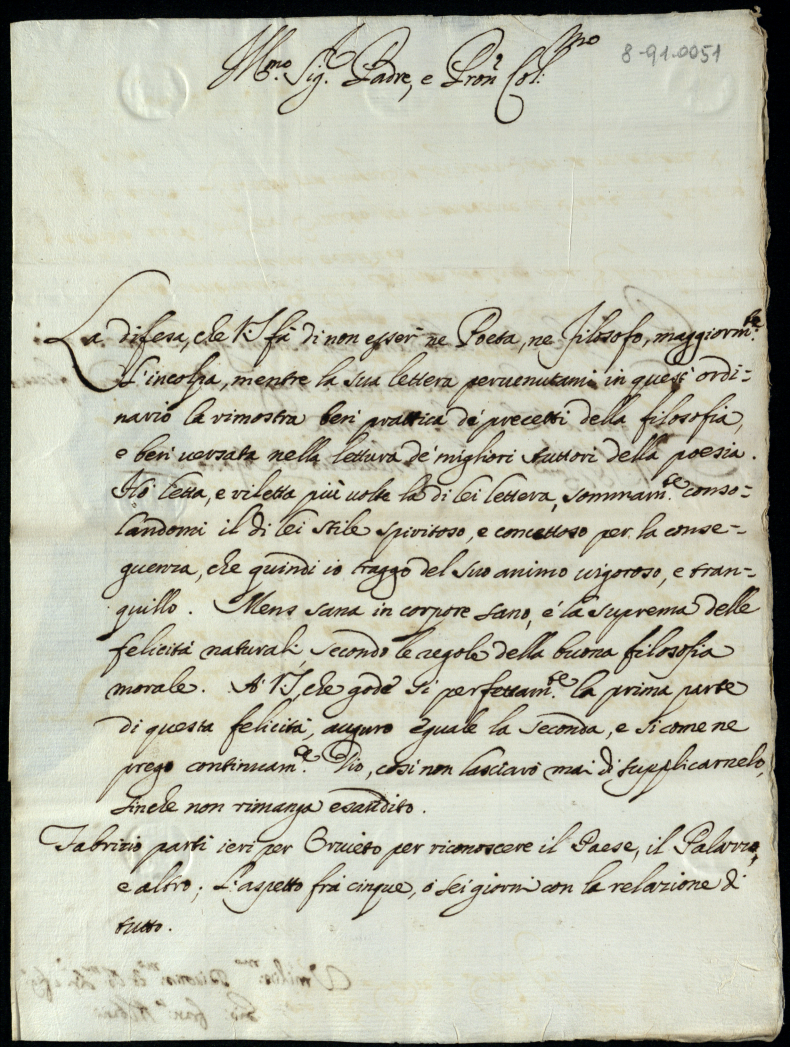 Ill.mo Sig.r Padre, e Pron Col.mo
8-91-0051
La difesa, che V.S. fà di non esser ne Poeta, ne Filosofo, maggiorm.te
l'incolpa, mentre la sua lettera peruenutami in quest' ordi=
nario la rimostra ben prattica de' precetti della filosofia,
e ben uersata nella lettura de' migliori Auttori della poesia.
Hò letta, e riletta più uolte la di lei lettera, sommam.te conso=
landomi il di lei stile spiritoso, e concettoso per la conse=
guenza, che quindi io traggo del suo animo uigoroso, e tran=
quillo. Mens sana in corpore sano, è la suprema delle
felicità naturali, secondo le regole della buona filosofia
morale. A V.S., che gode sì perfettam.te la prima parte
di questa felicità, auguro eguale la seconda, e si come ne
prego continuam.te Dio, così non lasciarò mai di supplicarnelo,
finche non rimanga esaudito.
Fabrizio partì ieri per Oruieto per riconoscere il Paese, il Palazzo,
e altro; L'aspetto frà cinque, ò sei giorni con la relazione di
tutto.